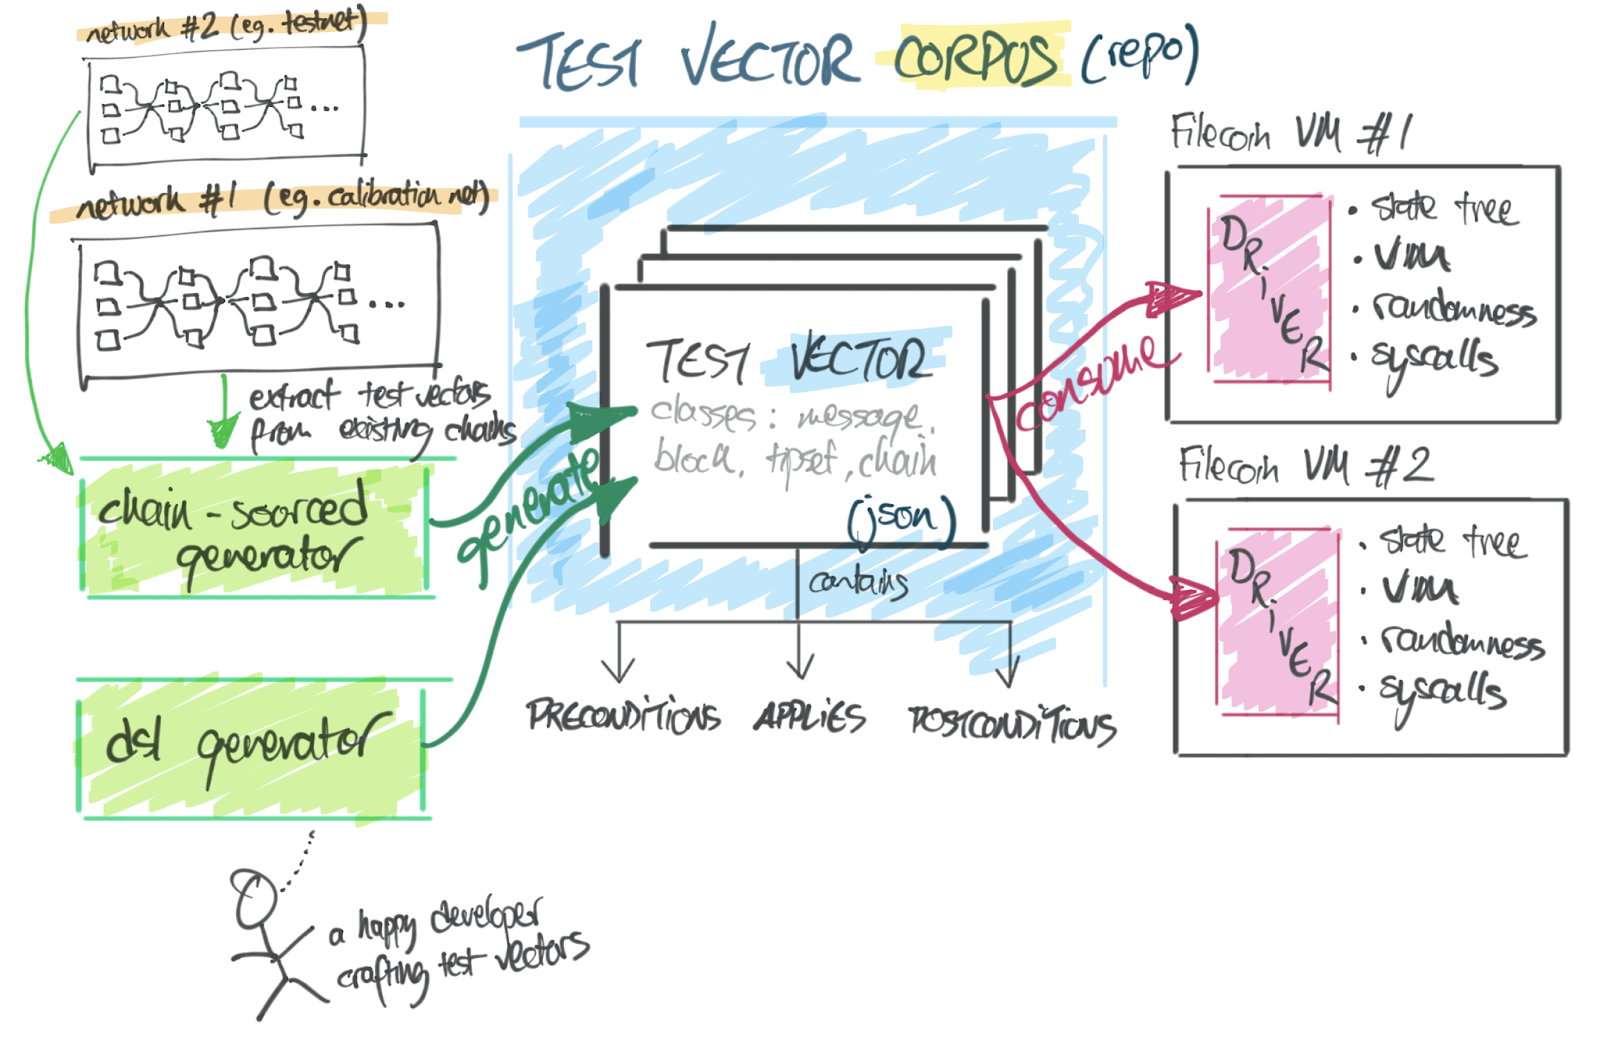 network #2 (eg. testnet)
...
network #1 (eg. calibration net)
...
extract test vectors
from existing chains
chain-sourced
generator
dsl generator
a happy developer
crafting test vectors
generate
TEST VECTOR CORPUS (repo)
TEST VECTOR
classes: message,
block, tipset, chain
(json)
contains
PRECONDITIONS APPLIES POSTCONDITIONS
consume
Filecoin VM #1
DRiVER
• state tree
• VM
• randomness
• syscalls
Filecoin VM #2
DRiVER
• state tree
• VM
• randomness
• syscalls